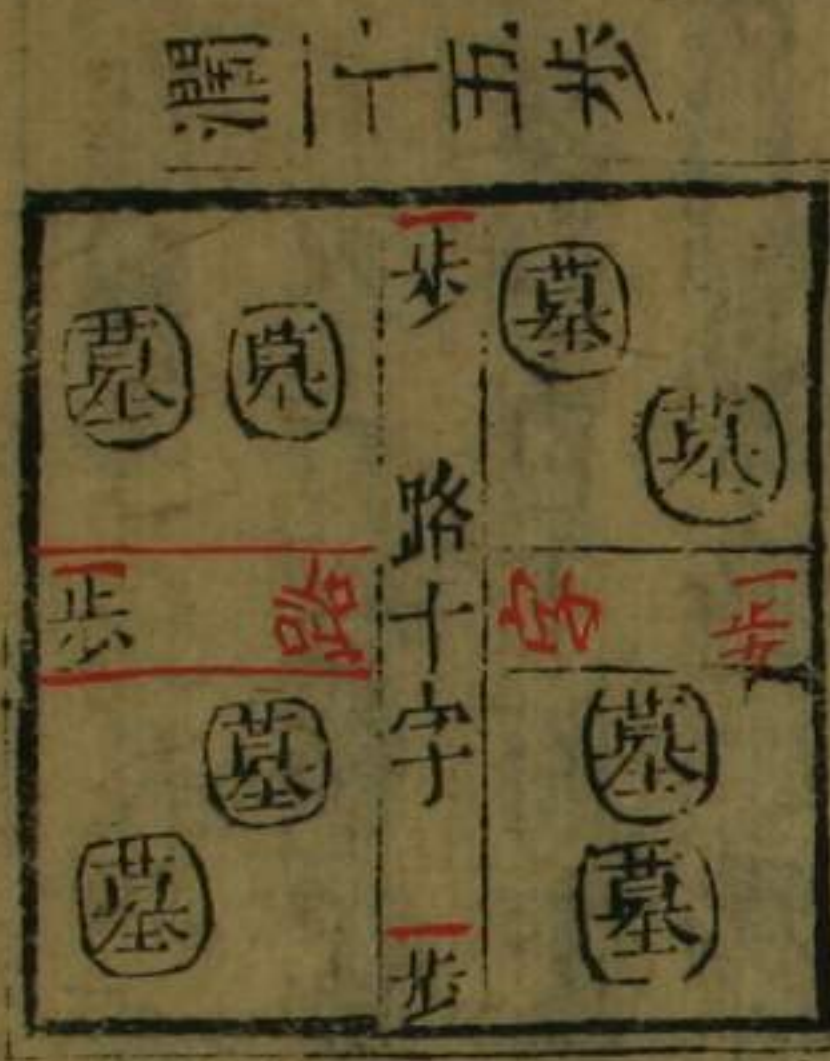 濶一十五步
一步
墓
墓
墓
墓
路十字
一步
路
字
一步
墓
墓
墓
墓
一步